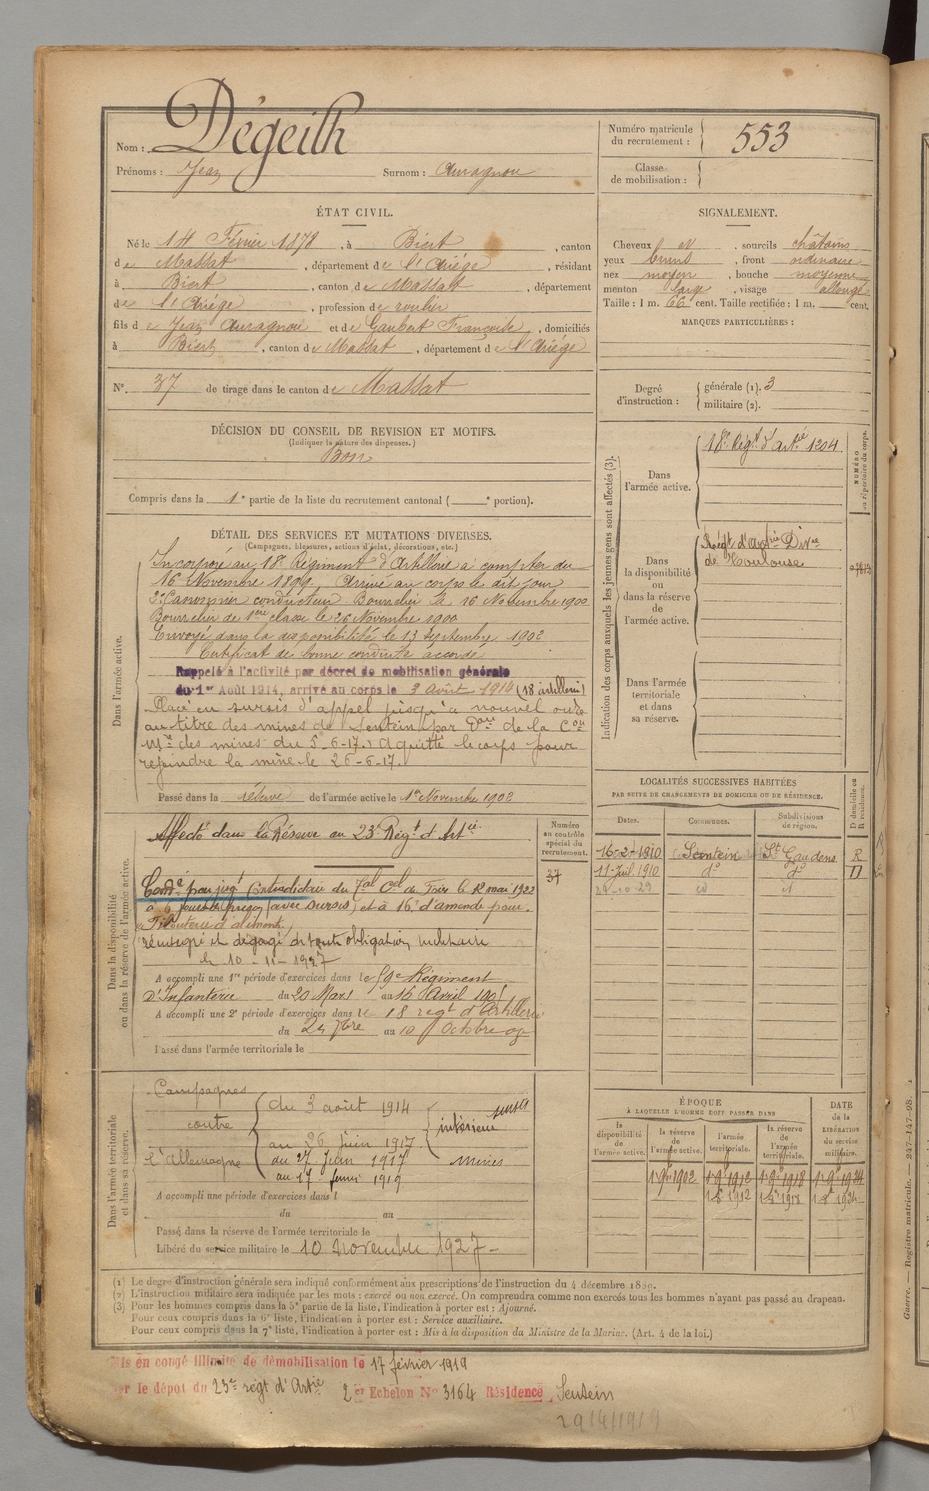 Nom : Dégeilh
Prénoms : Jean Surnom : Auragnou
Numéro matricule du recrutement : 553
Classe de mobilisation :
ÉTAT CIVIL.
Né le 14 Février 1878, à Biert, canton
de Massat, département de l'Ariège, résidant
à Biert, canton de Massat, département
de l'Ariège, profession de roulier
fils de Jean Auragnou et de Gaubert Françoise, domiciliés
à Biert, canton de Massat, département de l'Ariège
N°. 37 de tirage dans le canton de Massat
SIGNALEMENT.
Cheveux et, sourcils châtains
yeux bruns, front ordinaire
nez moyen, bouche moyenne
menton large, visage allongé
Taille : 1 m. 66 cent. Taille rectifiée : 1 m. cent.
MARQUES PARTICULIÈRES :
Degré d'instruction : générale (1). 3
militaire (2).
DÉCISION DU CONSEIL DE REVISION ET MOTIFS.
(Indiquer la nature des dispenses.)
Bon
Compris dans la 1e partie de la liste du recrutement cantonal ( e portion).
DÉTAIL DES SERVICES ET MUTATIONS DIVERSES.
(Campagnes, blessures, actions d'éclat, décorations, etc.)
Dans l'armée active.
Incorporé au 18e Régiment d'Artillerie à compter du
16 Novembre 1899, Arrivé au corps le dit jour
2e Canonnier conducteur Bourrelier le 16 Novembre 1900
Bourrelier de 1ère classe le 26 Novembre 1900
Envoyé dans la disponibilité le 13 Septembre 1902
Certificat de bonne conduite accordé
Rappelé à l'activité par décret de mobilisation générale
du 1er Août 1914, arrivé au corps le 3 Août 1914 (18 artillerie)
Placé en sursis d'appel jusqu'à nouvel ordre
au titre des mines de Sentein par Don de la Con
Mre des mines du 5-6-17. A quitté le corps pour
rejoindre la mine le 26-6-17.
Passé dans la réserve de l'armée active le 1er Novembre 1902
Indication des corps auxquels les jeunes gens sont affectés (3).
Dans l'armée active.
18e Régt d'Artie 1204
NUMÉRO au répertoire du corps.
Dans la disponibilité ou dans la réserve de l'armée active.
Régt d'Artie Dire
de Toulouse
Dans l'armée territoriale et dans sa réserve.
Dans la disponibilité ou dans la réserve de l'armée active.
Affecté dans la Réserve au 23e Régt d'Artie
Numéro au contrôle spécial du recrutement.
37
Condé par jugt contradictoire du Tal Cel de Foix le 12 mai 1922
à 6 jours de prison (avec sursis) et à 16f d'amende pour
Filouterie d'aliments
réintégré et dégagé de toute obligation militaire
le 10-11-1927
A accompli une 1re période d'exercices dans le 59e Régiment
d'Infanterie du 20 Mars au 16 Avril 190
A accompli une 2e période d'exercices dans le 18 régt d'Artillerie
du 24 7bre au 10 Octobre 07
Passé dans l'armée territoriale le
LOCALITÉS SUCCESSIVES HABITÉES
PAR SUITE DE CHANGEMENTS DE DOMICILE OU DE RÉSIDENCE.
Dates. Communes. Subdivisions de région. D domicile ou R résidence.
16-2-1910 Sentein St Gaudens R
11-Juil 1910 do do D
Dans l'armée territoriale et dans sa réserve.
Campagnes contre l'Allemagne
du 3 août 1914
au 26 juin 1917 intérieur
du 27 Juin 1917
au 17 février 1919 sursis mines
A accompli une période d'exercices dans l
du au
Passé dans la réserve de l'armée territoriale le
Libéré du service militaire le 10 novembre 1927
ÉPOQUE
À LAQUELLE L'HOMME DOIT PASSER DANS
la disponibilité de l'armée active. la réserve de l'armée active. l'armée territoriale. la réserve de l'armée territoriale.
DATE de la LIBÉRATION du service militaire.
1 9bre 1902 1 9 1912 1 9 1918 1 9 1924
1912 1918 1924
(1) Le degré d'instruction générale sera indiqué conformément aux prescriptions de l'instruction du 4 décembre 1889.
(2) L'instruction militaire sera indiquée par les mots : exercé ou non exercé. On comprendra comme non exercés tous les hommes n'ayant pas passé au drapeau.
(3) Pour les hommes compris dans la 5e partie de la liste, l'indication à porter est : Ajourné.
Pour ceux compris dans la 6e liste, l'indication à porter est : Service auxiliaire.
Pour ceux compris dans la 7e liste, l'indication à porter est : Mis à la disposition du Ministre de la Marine. (Art. 4 de la loi.)
Mis en congé illimité de démobilisation le 17 février 1919
par le dépôt du 23e régt d'Artie 2er Echelon No 3164 Résidence Sentein
29/4/1919
Guerre. — Registre matricule. — 247-147-98.